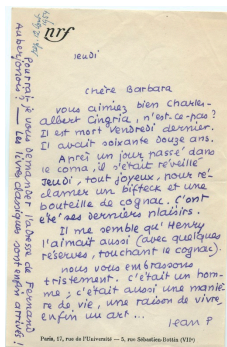 nrf
Jeudi
chère Barbara
vous aimiez bien Charles-
albert Cingria, n'est-ce-pas ?
Il est mort vendredi dernier.
Il avait soixante douze ans.
Après un jour passé dans
le coma, il s'était réveillé
Jeudi, tout joyeux, pour ré-
clamer un bifteck et une
bouteille de cognac. Ç'ont
été ses derniers plaisirs.
Il me semble qu'Henry
l'aimait aussi (avec quelques
réserves, touchant le cognac).
nous vous embrassons
tristement. c'était un hom-
me ; c'était aussi une maniè-
re de vie, une raison de vivre,
enfin un art...
Jean P
Paris, 17, rue de l'Université — 5, rue Sébastien-Bottin (VIIe)
Pourrai-je vous demander l'adresse de Fernand
Auberjonois ? — Les livres classiques sont enfin arrivés !